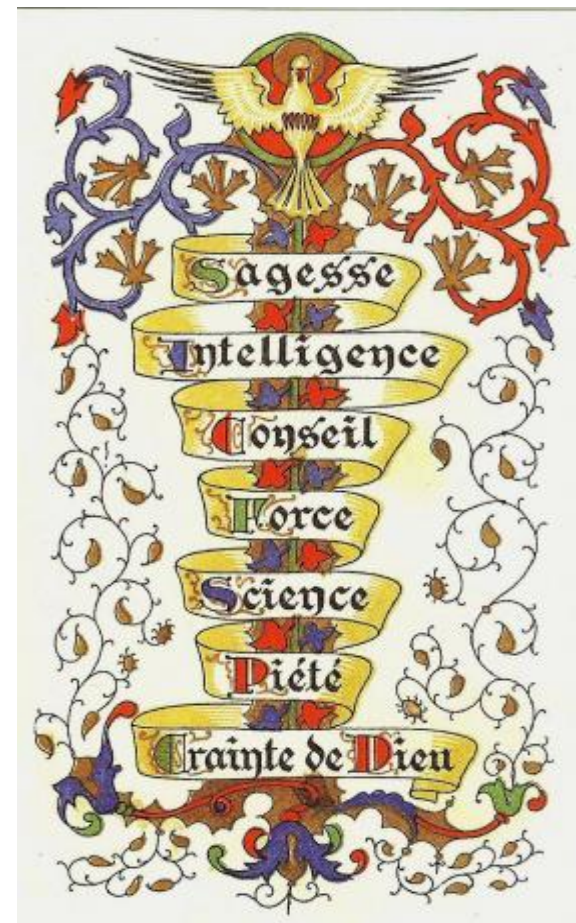 Sagesse
Intelligence
Conseil
Force
Science
Piété
Crainte de Dieu